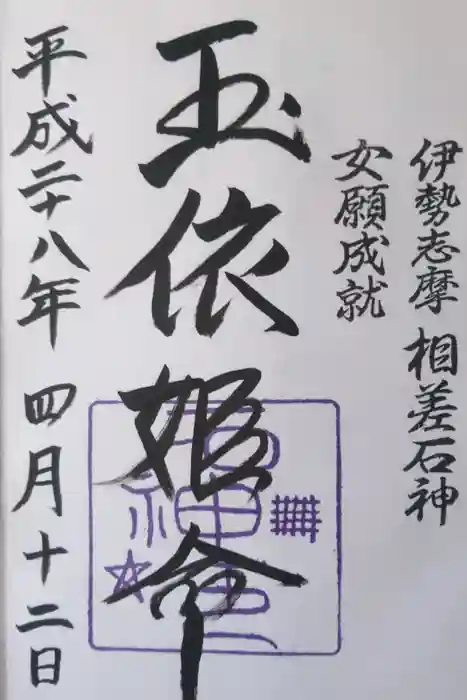 伊勢志摩 相差石神
女願成就
玉依姫命
平成二十八年 四月十二日